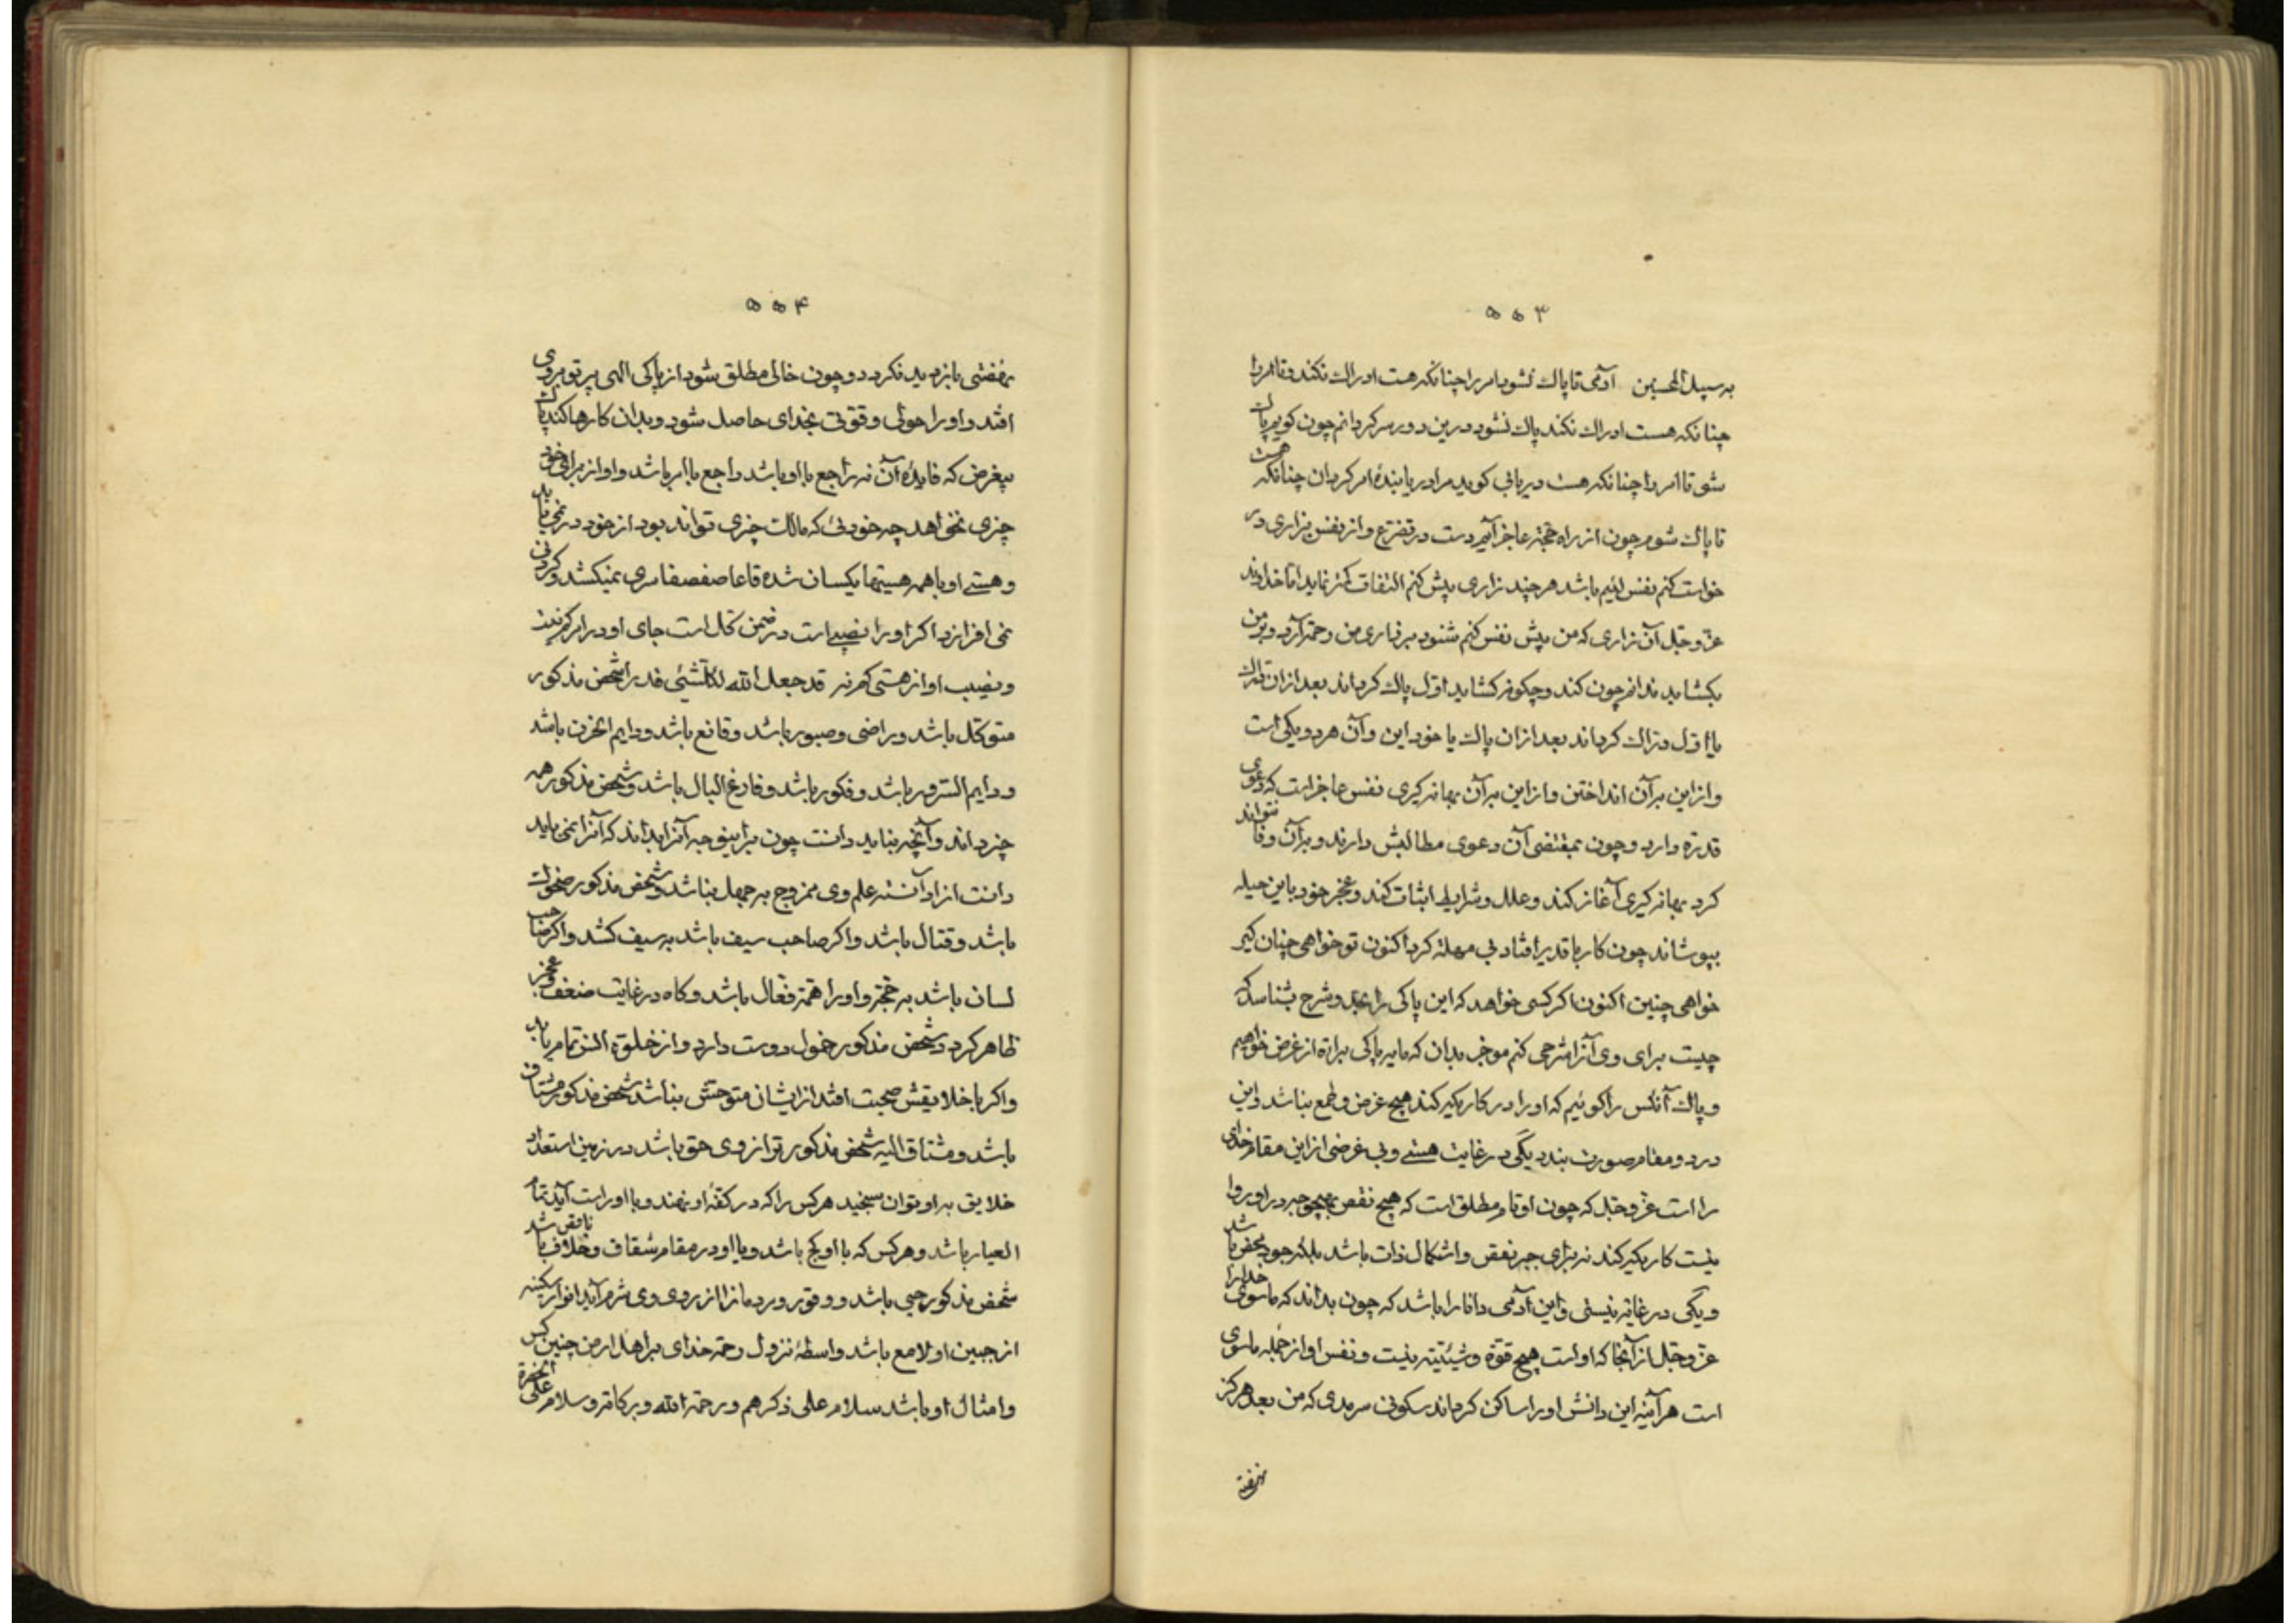 ۵۵۳
آدمی تا پاک نشود امر را چنانکه هست ادراک نکند و تا امر را
چنانکه هست ادراک نکند پاک نشود درین دور سرگردانم چون گویم پاک
شو تا امر را چنانکه هست دریابی گوید مرا دریابندهٔ امر گردان چنانکه هست
تا پاک شوم چون از راه حجّة عاجز آیم دست در تضرّع و از نفس بزاری در
خواست کنم نفس لئیم باشد هر چند زاری بیش کنم التفات کمتر نماید امّا خداوند
عزّ و جلّ آن زاری که من پیش نفس کنم شنود بر زاری من رحمة آرد و بر من
بکشاید ندانم چون کند و چگونه کشاید اوّل پاک گرداند بعد از ان درّاک
یا اوّل درّاک گرداند بعد از ان پاک یا خود این و آن هر دو یکی است
و از این بر آن انداختن و از این بر آن بهانه گیری نفس عاجز است که دعوی
قدرة دارد و چون بمقتضی آن دعوی مطالبش دارند و بر آن وفا نتواند
کرد بهانه گیری آغاز کند و علل و شرایط اثبات کند و عجز خود باین حیله
بپوشاند چون کار با قدیر افتاد بی مهلة کرد اکنون تو خواهی چنان گیر
خواهی چنین اکنون اگر کسی خواهد که این پاکی را بحدّ و شرح بشناسد که
چیست برای وی آنرا شرحی کنم موجز بدان که ما به پاکی براءة از غرض خواهیم
و پاک آنکس را گوئیم که او را در کار یکه کند هیچ غرض و طمع نباشد و این
در دو مقام صورت بندد یکی در غایت هستی و بی غرضی از این مقام خدای
را است عزّ و جلّ که چون او تامّ مطلق است که هیچ نقص بهیچ وجه در او روا
نیست کاریکه کند نه برای جبر نقص و اشکال ذات باشد بلکه جود محض باشد
و یکی در غایة نیستی و این آدمی دانا را باشد که چون بداند که ما سوی خدا را
عزّ و جلّ از آنجا که او است هیچ قوّة و شیئیّته نیست و نفس او از جمله ما سوی
است هر آینه این دانش او را ساکن گرداند سکونی سرمدی که من بعد هرگز
۵۵۴
بازدید نگردد و چون خالی مطلق شود از پاکی الهی پرتو بر وی
افتد و او را حولی و قوّتی بخدای حاصل شود و بدان کارها کند پاک
بیغرض که فایدهٔ آن نه راجع با او باشد راجع با امر باشد و او از برای خود
چیزی نخواهد چه خودئی که مالک چیزی تواند بود از خود در نمی یابد
و هستی او با همه هستیها یکسان شده قاعا صفصفا سری نمیکشد و گردنی
نمی افرازد اگر او را نصیب است در ضمن کل است جای او در امر گم نیست
و نصیب او از هستی گم نه قد جعل الله لکلّ شیئ قدرا شخص مذکور
متوکّل باشد و راضی و صبور باشد و قانع باشد و دایم الحزن باشد
و دایم السّرور باشد و فکور باشد و فارغ البال باشد و شخص مذکور همه
چیز داند و آنچه نباید دانست چون براینوجه آنرا بداند که آنرا نمی باید
دانست از دانسته علم وی ممزوج بجهل نباشد و شخص مذکور ضحوک
باشد و قتال باشد و اگر صاحب سیف باشد به سیف کشد و اگر صاحب
لسان باشد به حجّة و او را همّة فعّال باشد و گاه در غایت ضعف و عجز
ظاهر گردد و شخص مذکور خمول دوست دارد و از خلوة السّ تمام یابد
و اگر با خلایقش صحبت افتد از ایشان متوحّش نباشد شخص مذکور مشتاق
باشد و مشتاق الیه شخص مذکور ترازوی حق باشد در زمین استعداد
خلایق به او توان سنجید هر کس را که در کفّهٔ او نهند و با او راست آید تمام
العیار باشد و هر کس که با او کج باشد و با او در مقام شقاق و خلاف باشد ناقص باشد
شخص مذکور حیی باشد و وقور مردمانرا از روی وی شرم آید انوار سکینه
از جبین او لامع باشد واسطهٔ نزول رحمة خدای بر اهل ارض چنین کس
و امثال او باشد سلام علی ذکرهم و رحمة الله و برکاته و سلام علی الحضرة